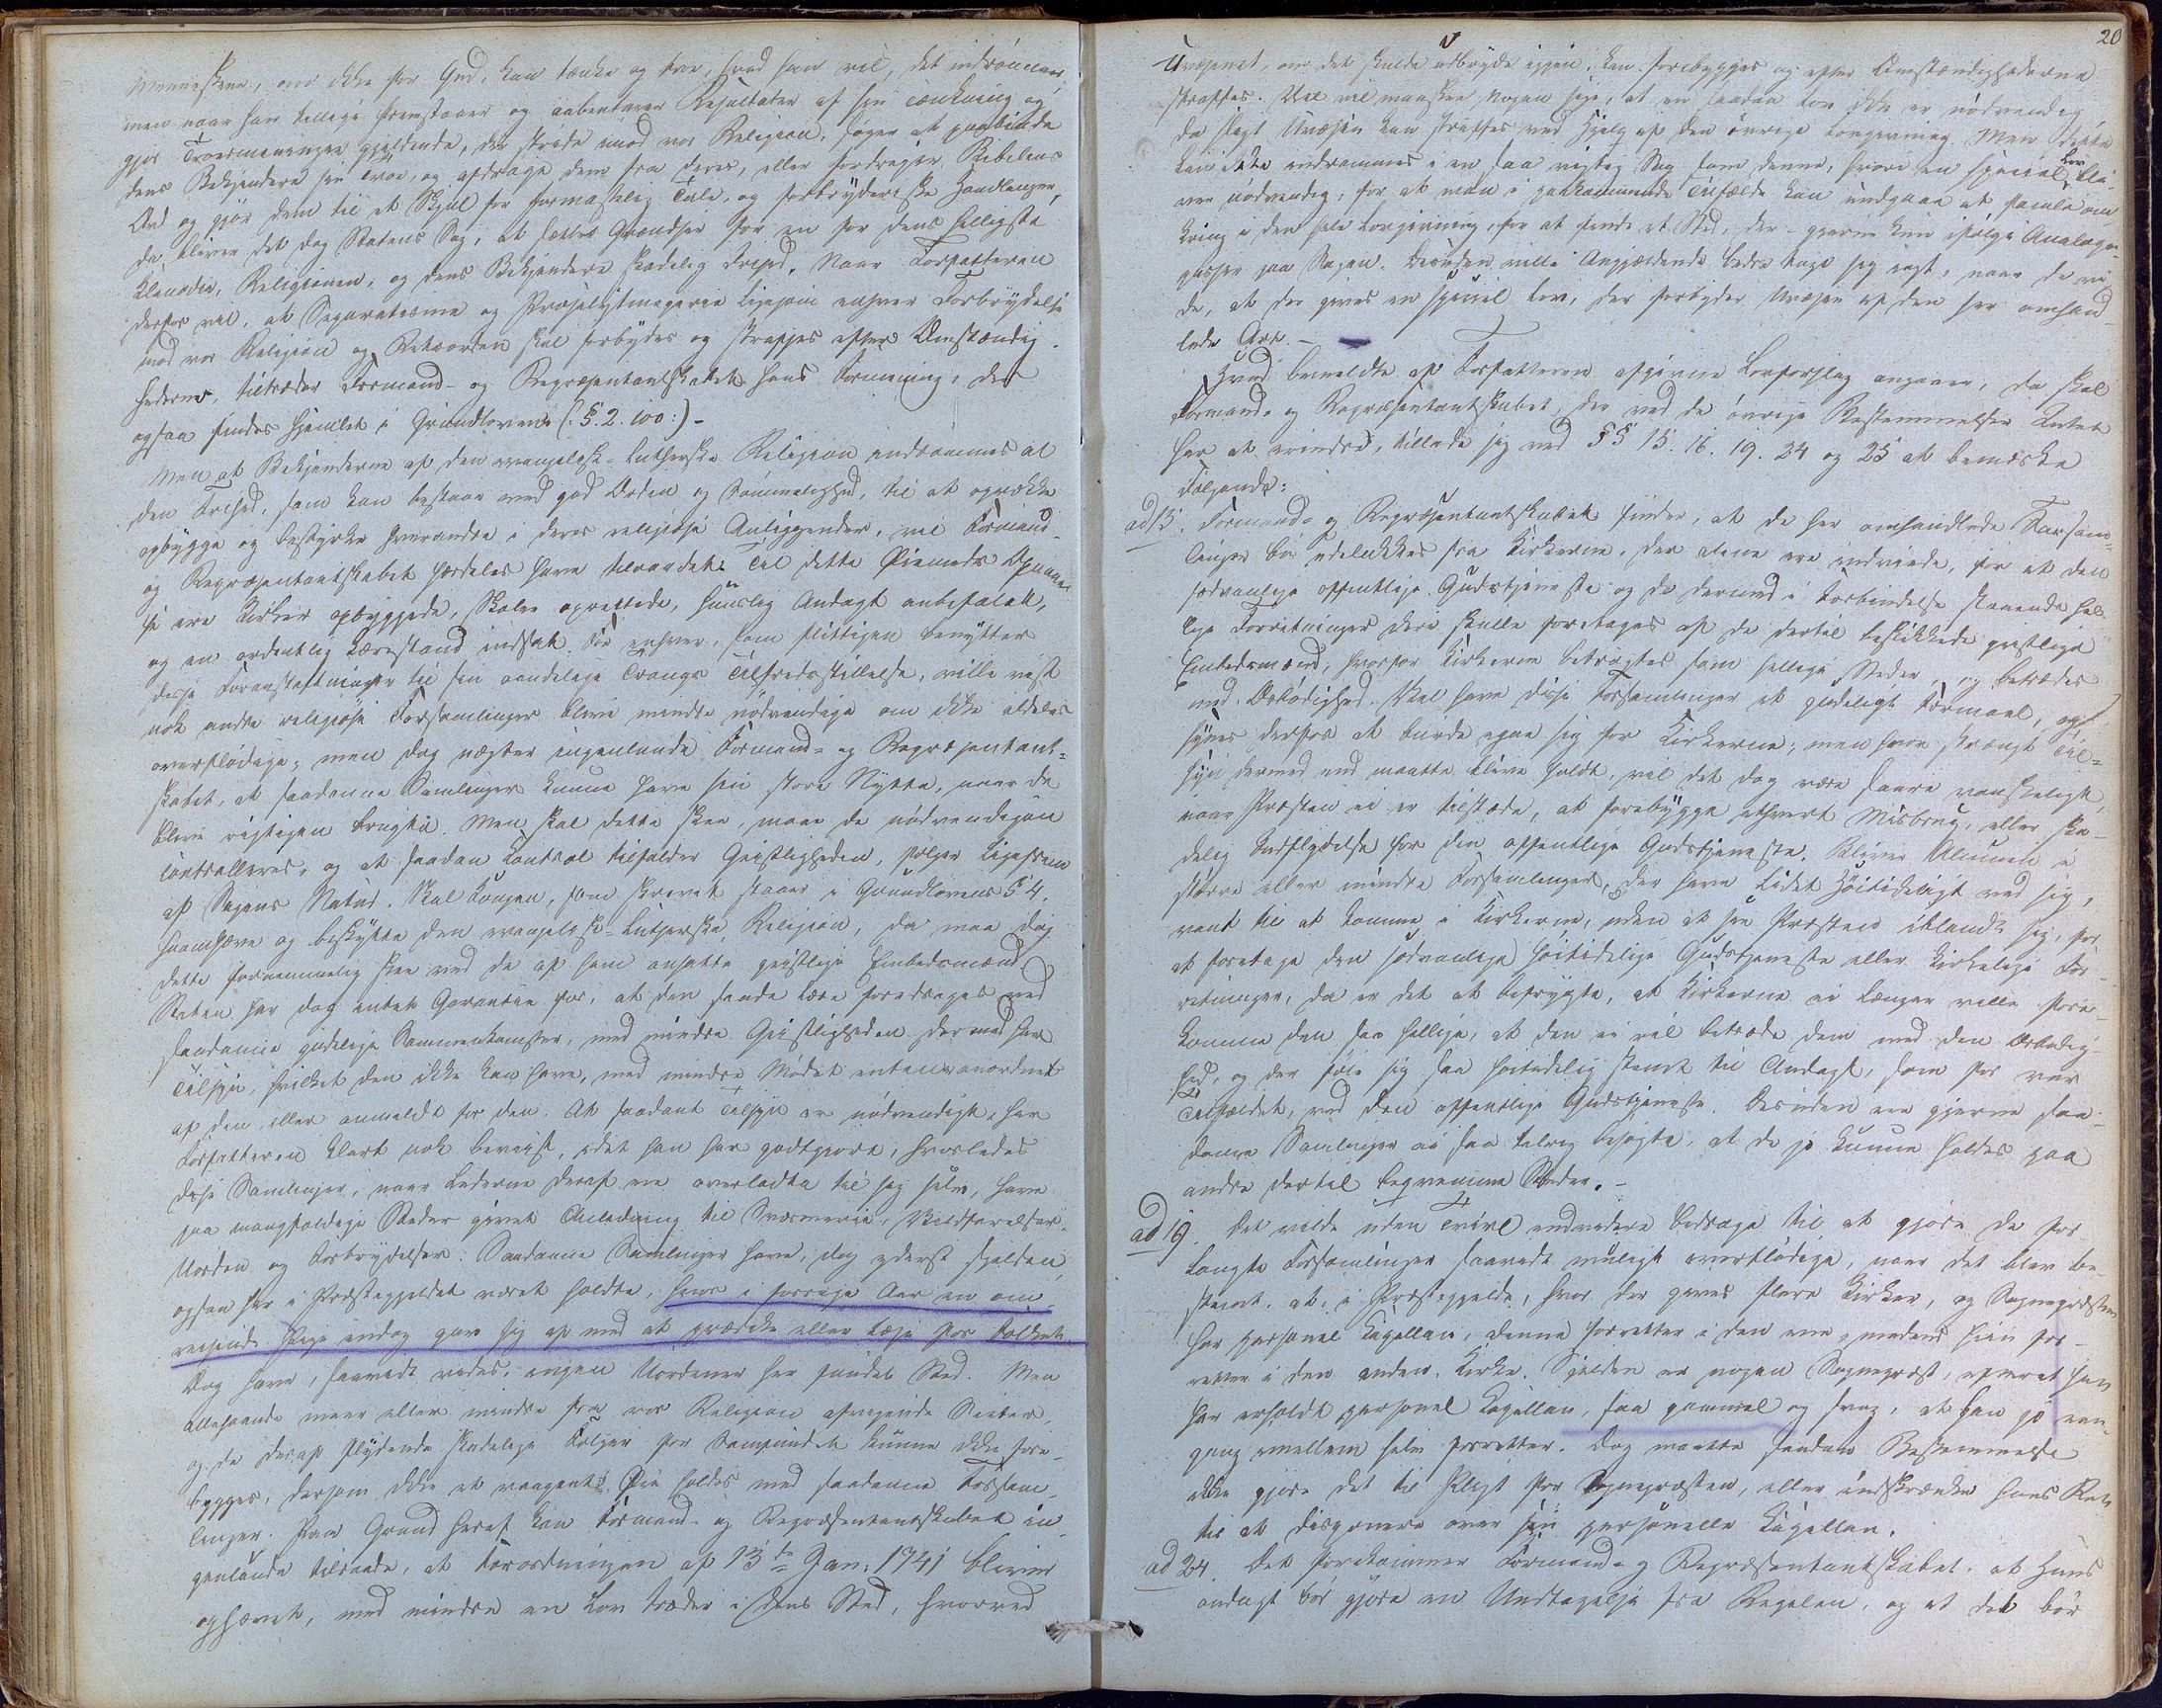 Menneskene, om ikke for Gud, kan tænke og troe, hvad han vil, det indrømmes,
men naar han tillige fremstaaer og aabenbarer Resultater af sin Tænkning og
gjør Troesmeninger gjældende, der stride imod vor Religion, søger at paabinde
dens Bekjendere sin Troe, og afdrage dem fra deres, eller fordreier Bibelens
Ord og gjør dem til et Skjul for formastelig Tale, og forbryderiske Handlinger,
da bliver det dog Statens Sag, at sættes Grændser for en for dens helligste
Klenodie, Religionen, og dens Bekjendere skadelig Frihed. Naar Forfatteren
derfor vil, at Separatisme og Proselytmagerie ligesom enhver Forbrydelse
mod vor Religion og Retsorden skal forbydes og straffes efter Omstændig-
hederne, tiltræder Formand- og Repræsentantskabet hans Formening, der
ogsaa findes hjemlet i Grundlovens (§. 2. 100:) -
Men at Bekjenderne af den evangelisk-lutherske Religion indrømmes al
den Frihed, som kan bestaae med god Orden og Sømmelighed, til at opvække
opbygge og bestyrke hverandre i deres religiøse Anliggender, vil Formand-
og Repræsentantskabet særdeles have tilraadet. Til dette Øiemeds Opnaael-
se ere Kirker opbyggede, Skoler oprettede, huuslig Andagt anbefalet,
og en ordentlig Lærestand indsat. For enhver, som flittigen benytter
disse Foranstaltninger til sin aandelige Trangs Tilfredsstillelse, ville vist
nok andre religiøse Forsamlinger blive mindre nødvendige om ikke aldeles
overflødige; men dog nægter ingenlunde Formand- og Repræsentant-
skabet, at saadanne Samlinger kunne have sin store Nytte, naar de
blive rigtigen brugte. Men skal dette skee, maae de nødvendigen
controlleres, og at saadan Control tilfalder Geistligheden, følger ligefrem
af Sagens Natur. Skal Kongen, som skrevet staaer i Grundlovens § 4,
haandhæve og beskytte den evangelisk-lutherske Religion, da maa dog
dette fornemmelig skee ved de af ham ansatte geistlige Embedsmænd.
Staten har dog intet Garantie for, at den sande Lære foredrages ved
saadanne gudelige Sammenkomster, med mindre Geistligheden dermed har
Tilsyn, hvilket den ikke kan have, med mindre Mødet enten er anordnet
af den, eller anmeldt for den. At saadant Tilsyn er nødvendigt, har
Forfatteren klart nok beviist, idet han har godtgjort, hvorledes
disse Samlinger, naar Lederne deraf ere overladte til sig selv, have
paa mangfoldige Steder givet Anledning til Sværmerie, Vildfarelser,
Uorden og Forbrydelser. Saadanne Samlinger have, dog yderst sjelden,
ogsaa her i Præstegjeldet været holdte, hvor i forrige Aar en om-
reisende Pige endog gav sig af med at prædike eller læse for Folket.
Dog have, saavidt vides, ingen Uordener her fundet Sted. Men
allehaande meer eller mindre fra vor Religion afvigende Secter,
og de deraf flydende skadelige Følger for Samfundet kunne ikke fore-
bygges, dersom ikke et vaagent Øie holdes med saadanne Forsam-
linger. Paa Grund heraf kan Formand- og Repræsentantskabet in-
genlunde tilraade, at Forordningen af 13de Jan: 1741 bliver
ophævet, med mindre en Lov træder i dens Sted, hvorved
20
Uvæsenet, om det skulde udbryde igjen, kan forebygges og efter Omstændighederne
straffes. Vel vil maaskee Nogen sige, at en saadan Lov ikke er nødvendig
da sligt Uvæsen kan straffes ved Hjelp af den øvrige Lovgivning. Men dette
kan ikke indrømmes i en saa vigtig Sag som denne, hvori en special Lov bli-
ver nødvendig, for at man i paakommende Tilfælde kan undgaae at famle om-
kring i den hele Lovgivning, for at finde et Sted, der - gjerne kun ifølge Analogie -
passer paa Sagen. Desuden ville Angjældende bedre tage sig iagt, naar de vi-
de, at der gives en special Lov, der forbyder Uvæsen af den her omhand-
lede Art. -
Hvad bemeldte af Forfatteren afgivne Lovforslag angaaer, da skal
Formand- og Repræsentantskabet, der ved de øvrige Bestemmelser Intet
har at erindre, tillade sig ved §§ 15. 16. 19. 24 og 25 at bemærke
Følgende:
ad 15. Formand- og Repræsentantskabet finder, at de her omhandlede Forsam-
linger bør udelukkes fra Kirkerne, der alene ere indviede, for at den
sædvanlige offentlige Gudstjeneste og de dermed i Forbindelse staaende hel-
lige Forretninger deri skulle foretages af de dertil beskikkede geistlige
Embedsmænd, hvorfor Kirkerne betragtes som hellige Steder, og betrædes
med Ærbødighed. Vel have disse Forsamlinger et gudeligt Formaal, og
synes derfor at burde egne sig for Kirkerne; men hvor strængt Til-
syn dermed end maatte blive holdt, vil det dog være saare vanskeligt,
naar Præsten ei er tilstæde, at forebygge ethvert Misbrug, eller ska-
delig Indflydelse for den offentlige Gudstjeneste. Bliver Almuen i
større eller mindre Forsamlinger, der have Lidet Høitideligt ved sig,
vant til at komme i Kirkerne, uden at see Præsten iblandt sig, for
at foretage den sædvanlige høitidelige Gudstjeneste eller kirkelige For-
retninger, da er det at befrygte, at Kirkerne ei længer ville fore-
komme den saa hellige, at den ei vil betræde dem med den Ærbødig-
hed, og der føle sig saa høitidelig stemt til Andagt, som før var
Tilfældet, ved den offentlige Gudstjeneste. Desuden ere gjerne saa-
danne Samlinger ei saa talrig besøgte, at de jo kunne holdes paa
andre dertil beqvemme Steder. -
ad 19. Det vilde uden Tvivl endvidere bidrage til at gjøre de for-
langte Forsamlinger saavidt muligt overflødige, naar det blev be-
stemt, at, i Præstegjelde, hvor der gives flere Kirker, og Sognepræsten
har personel Kapellan, denne forretter i den ene, medens hiin for-
retter i den anden Kirke. Sjelden er nogen Sognepræst, uagtet han
har erholdt personel Kapellan, saa gammel og svag, at han jo een-
gang imellem selv forretter. Dog maatte saadan Bestemmelse
ikke gjøre det til Pligt for Sognepræsten, eller indskrænke hans Ret
til at disponere over sin personelle Kapellan.
ad 24. Det forekommer Formand- og Repræsentantskabet, at Huus
andagt bør gjøre en Undtagelse fra Regelen, og at det bør